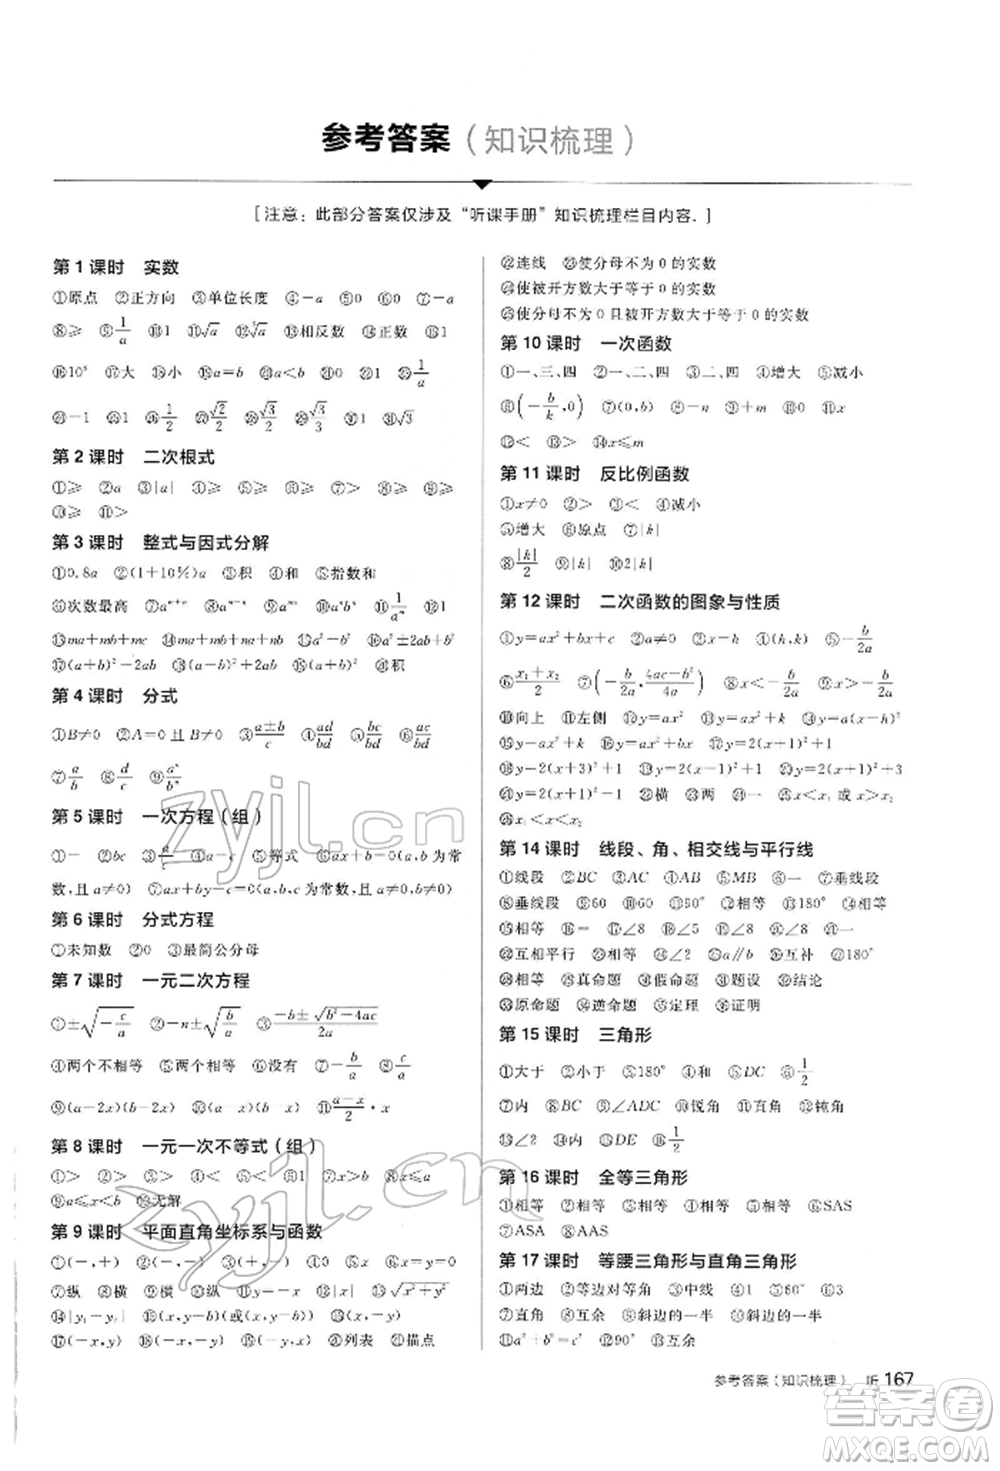 参考答案（知识梳理）
[注意：此部分答案仅涉及“听课手册”知识梳理栏目内容.]
第 1 课时 实数
①原点 ②正方向 ③单位长度 ④-a ⑤0 ⑥a ⑦-a
⑧≥ ⑨1/a ⑪√a ⑬相反数 ⑭正数 ⑮1
⑰大 ⑱小 ⑲a=b ⑳a<b ㉑0 ㉒1 1/a
-1 1 1/2 √2/2 √3/2 √3/3 √3
第 2 课时 二次根式
①≥ ②a ③|a| ④≥ ⑤≥ ⑥≥ ⑦≥ ⑧≥ ⑨≥
⑩≥ ⑪>
第 3 课时 整式与因式分解
①0.8a ②(1+10%)a ③积 ④和 ⑤指数和
⑥次数最高
⑪ma+mb+mc
⑮(a+b)²-2ab ⑯(a-b)²+2ab ⑰(a+b)²-4ab ⑱积
第 4 课时 分式
①B≠0 ②A=0 且 B≠0 ③(a±b)/c ④ad/bd bc/bd ac/bd
⑦a/b ⑧d/c ⑨aⁿ/bⁿ
第 5 课时 一次方程（组）
①= ②bc ③a/c ④a-c ⑤等式 ⑥ax+b=0(a,b 为常
数,且 a≠0) ⑦ax+by=c=0(a,b,c 为常数,且 a≠0)
第 6 课时 分式方程
①未知数 ②0 ③最简公分母
第 7 课时 一元二次方程
①±√(-c/a) ②-n±√(b/a) ③(-b±√(b²-4ac))/2a
④两个不相等 ⑤两个相等 ⑥没有 ⑦-b/a ⑧c/a
⑨(a-2x)(b-2x) ⑩(a-x)(b-x) ⑪(a-x)/2·x
第 8 课时 一元一次不等式（组）
①> ②> ③< ④> ⑤< ⑥< ⑦x≥b ⑧x≤a
⑨a≤x<b ⑩无解
第 9 课时 平面直角坐标系与函数
①(-,+) ②(-,-) ③(+,-) ④0 ⑤x ⑥x=y ⑦x=-y
⑦纵 ⑧横 ⑨横 ⑩纵 ⑪|y| ⑫|x| ⑬√(x²+y²)
⑭|y₁-y₂| ⑮(x,y-b)(或(x,y+b)) ⑯(x,-y)
⑰(-x,y) ⑱(-x,-y) ⑳列表 ㉑描点
㉒连线 ㉓使分母不为 0 的实数
㉔使被开方数大于等于 0 的实数
㉕使分母不为 0 且被开方数大于等于 0 的实数
第 10 课时 一次函数
①一、三、四 ②一、二、四 ③二、四 ④增大 ⑤减小
⑥(-b/k,0) ⑦(0,b) ⑧-n ⑨+m ⑩0 ⑪x
⑫< ⑬> ⑭x≤m
第 11 课时 反比例函数
①x≠0 ②> ③< ④减小
⑤增大 ⑥原点 ⑦|k|
⑧|k|/2 ⑨|k| ⑩2|k|
第 12 课时 二次函数的图象与性质
①y=ax²+bx+c ②a≠0 ③x=h ④(h,k) ⑤-b/2a
⑥(x₁+x₂)/2 ⑦(-b/2a,(4ac-b²)/4a) ⑧x=-b/2a ⑨x=-b/2a
⑩向上 ⑪左侧 ⑫y=ax² ⑬y=ax²+k ⑭y=a(x-h)²
⑮y=ax²+k ⑯y=ax²+bx ⑰y=2(x-1)²+1
⑱y=2(x+3)²+1 ⑲y=2(x+1)²-1 ⑳y=2(x+1)²+7
㉑y=2(x+1)²+1 ㉒横 ㉓两 ㉔一 ㉕x<x₁ 或 x>x₂
㉖x₁<x<x₂
第 14 课时 线段、角、相交线与平行线
①线段 ②BC ③AC ④AB ⑤MB ⑥一 ⑦垂线段
⑧垂线段 ⑨60 ⑩60 ⑪50° ⑫相等 ⑬180° ⑭相等
⑮相等 ⑯一 ⑰∠8 ⑱∠8 ⑲∠8 ⑳∠8 ㉑一
㉒互相平行 ㉓相等 ㉔∠2 ㉕a∥b ㉖互补 ㉗180°
㉘相等 ㉙互补 ㉚真命题 ㉛假命题 ㉜题设 ㉝结论
㉞原命题 ㉟逆命题 ㊱定理 ㊲证明
第 15 课时 三角形
①大于 ②小于 ③180° ④和 ⑤DC ⑥1/2
⑦内 ⑧BC ⑨∠ADC ⑩锐角 ⑪直角 ⑫钝角
⑬∠2 ⑭内 ⑮DE ⑯1/2
第 16 课时 全等三角形
①相等 ②相等 ③相等 ④相等 ⑤SSS ⑥SAS
⑦ASA ⑧AAS
第 17 课时 等腰三角形与直角三角形
①两边 ②等边对等角 ③中线 ④1 ⑤60° ⑥3
⑦直角 ⑧互余 ⑨斜边的一半 ⑩斜边的一半
⑪a²+b²=c² ⑫90° ⑬互余
参考答案（知识梳理） 听 167
zyjl.cn
zyjl.cn
答案圈
MXQE.COM